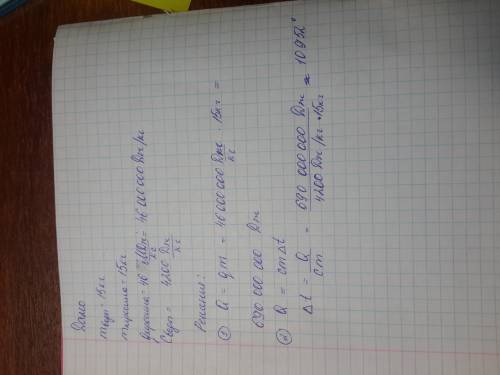 Дано
m воды = 15 кг
m керосина = 15 кг
q керосина = 46 МДж/кг = 46 000 000 Дж/кг
C воды = 4200 Дж/кг
Решение:
① Q = qm = 46 000 000 Дж/кг · 15 кг =
690 000 000 Дж
② Q = cm∆t
∆t = Q/cm = 690 000 000 Дж / 4200 Дж/кг * 15 кг ≈ 10952°